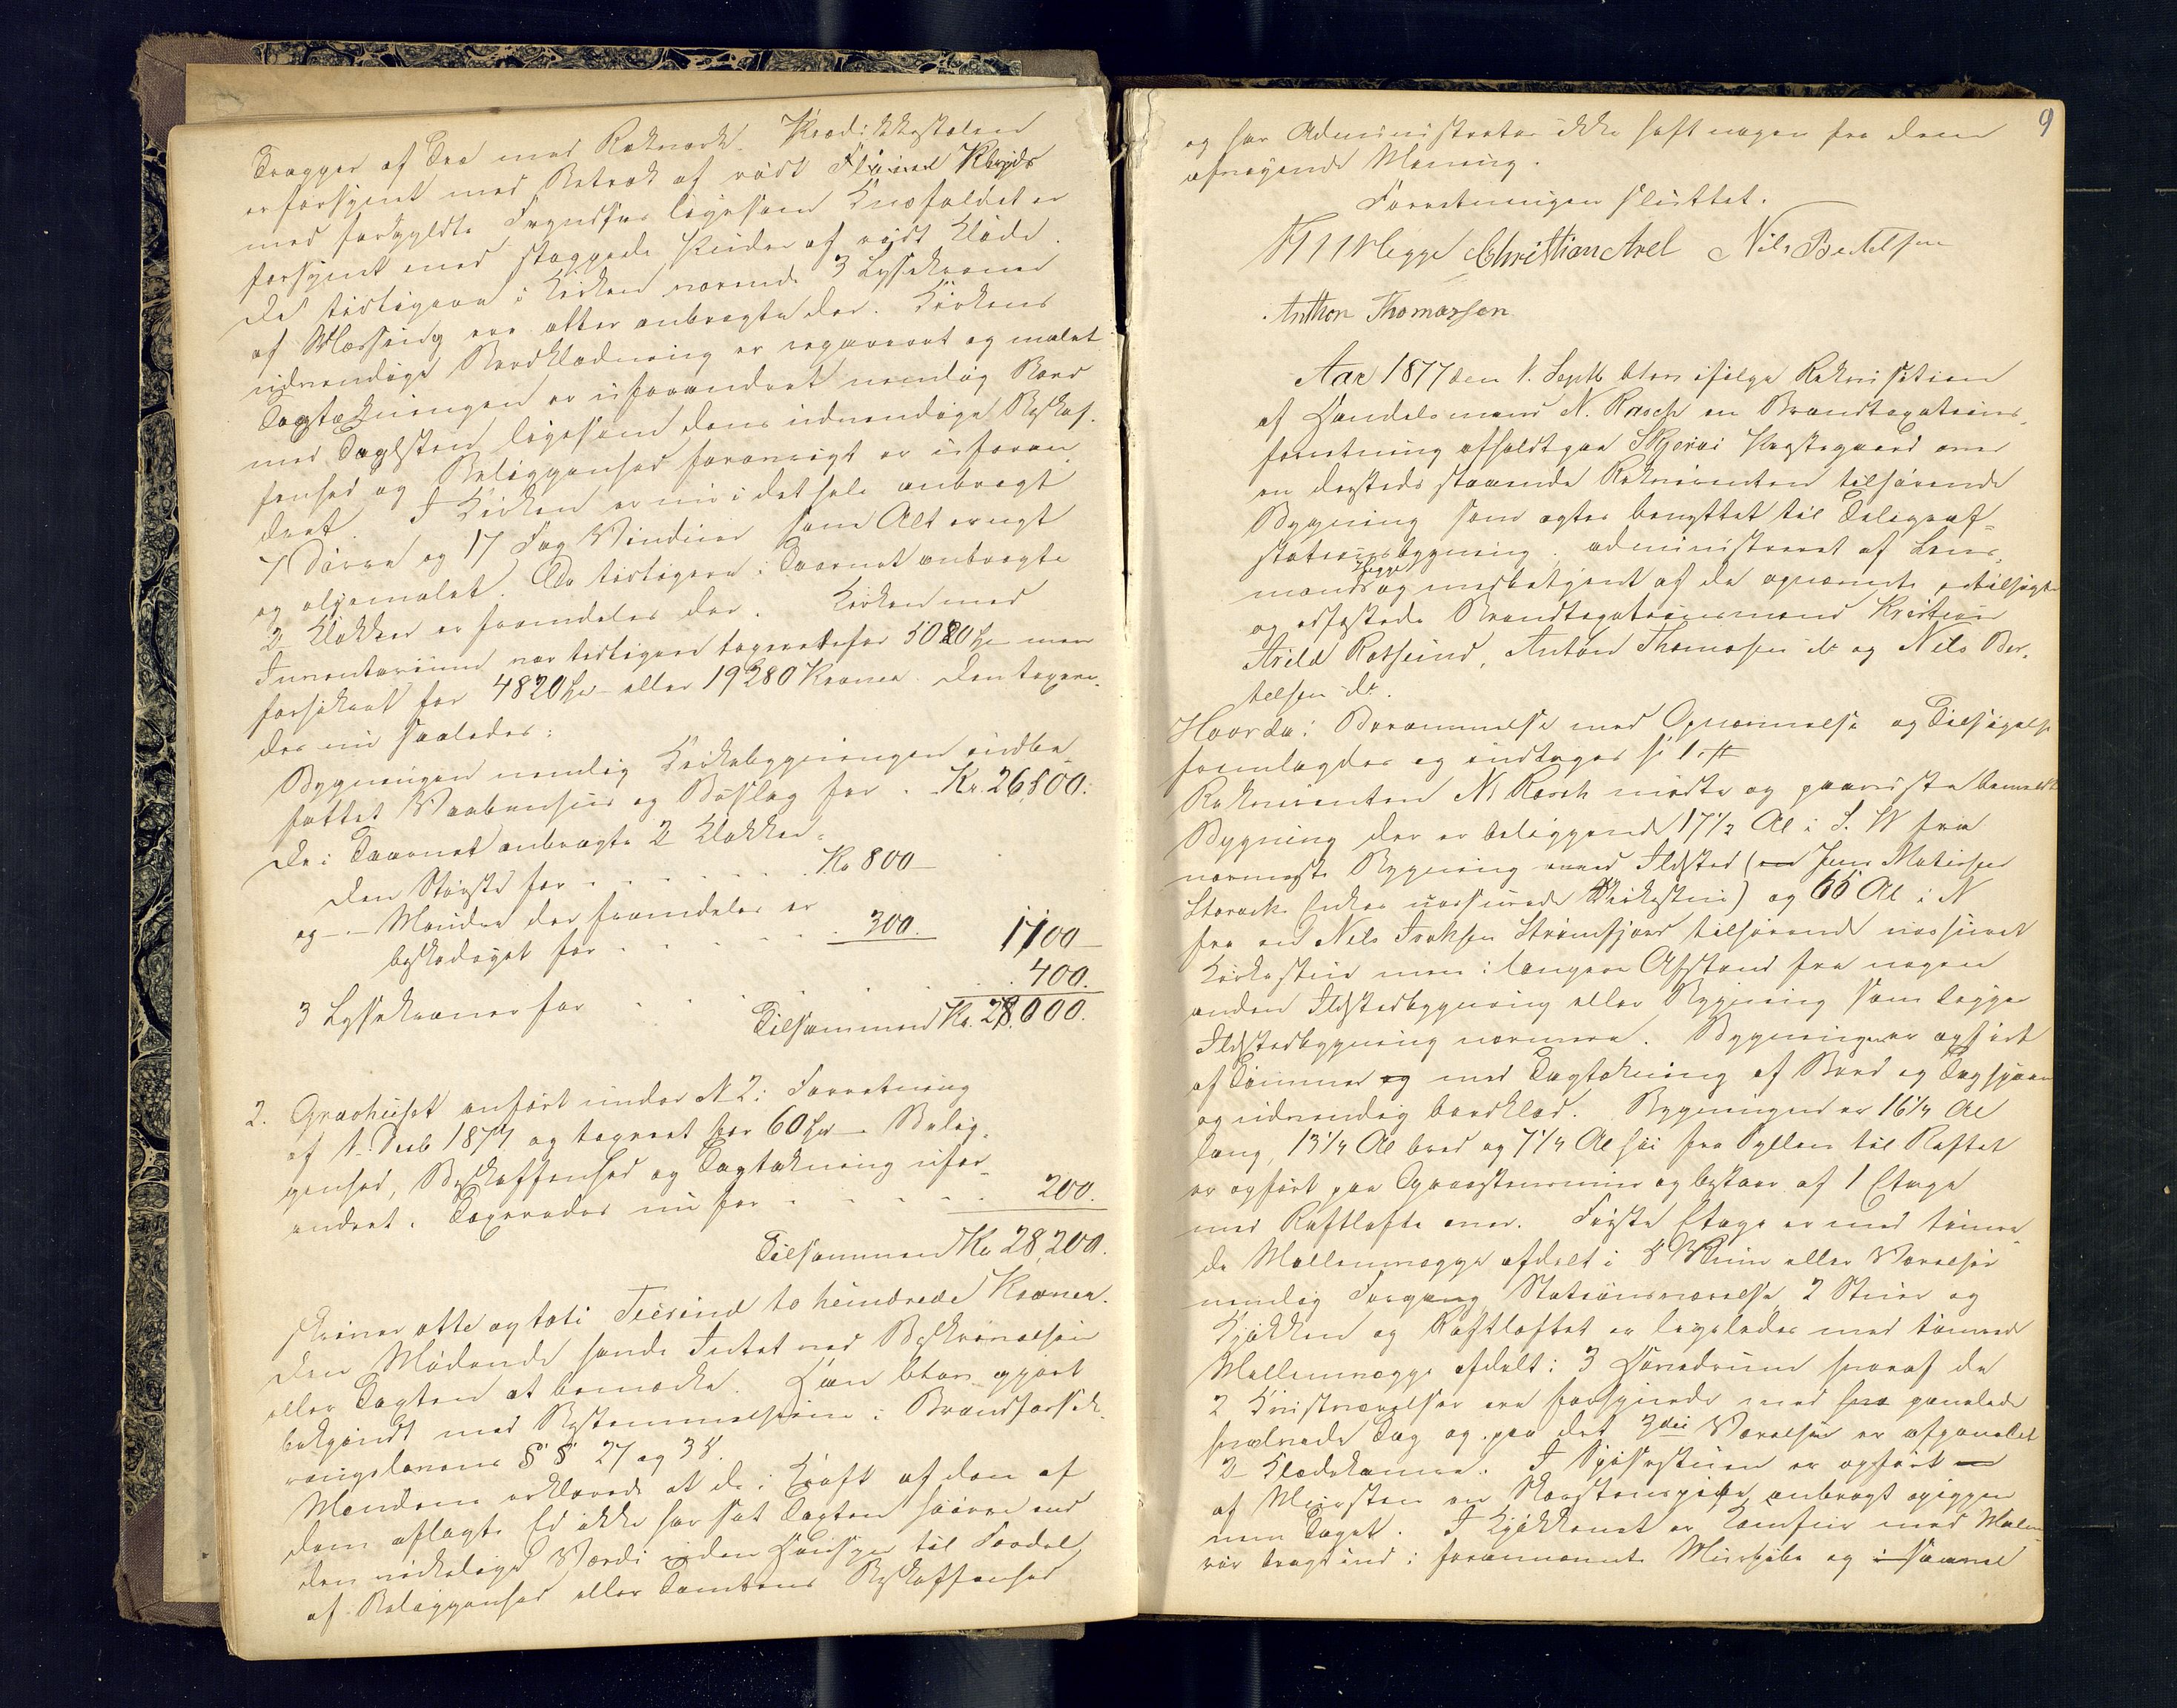 Trapper af Træ med Rækværk. Prædikkestolen
er forsynet med Betræk af rødt Kløyds
med forgyldte Fryndser ligesom Knæfaldet er
forsynet med stoppede Puder af rødt Klæde.
De tidligere i Kirken værende 3 Lyssekroner
af Messing ere atter anbragte der. Kirkens
udvendige Bordklædning er repareret og malet
Tagtækningen er uforandret nemlig Bord
med Taglsten ligesom dens udvendige Beskaf-
fenhed og Beliggenhed forøvrigt er uforan-
dret. I Kirken er nu i det hele anbragt
7 Døre og 17 Fag Vinduer som Alt er nyt
og oljemalet. De tidligere i Taarnet anbragte
2 Klokker er fremdeles der. Kirken med
Inventarium var tidligere taxeret for 5020 Spd men
forsikret for 4820 Spd eller 19280 Kroner. Den taxere-
des nu saaledes:
Bygningen nemlig Kirkebygningen indbe-
fattet Vaabenhus og Bislag for . Kr. 26,500.
De i Taarnet anbragte 2 Klokker.
Den Største for . . . . . . Kr 800 —
og — Mindre der fremdeles er
beskadiget for . . . . . . 300. 1100 —
3 Lyssekroner for . . . . . . 400.
Tilsammen Kr. 28,000.
2. Gravhuset anført under N 2 i Forretning
af 1. Decb 1877 og taxeret for 60 Spd — Belig-
genhed, Beskaffenhed og Tagtækning ufor-
andret. Taxeredes nu for . . . . . . 200.
Tilsammen Kr 28,200.
skriver otte og toti Tusind to hundrede Kroner.
Den Mødende havde Intet ved Beskrivelsen
eller Taxten at bemærke. Han blev gjort
bekjendt med Bestemmelserne i Brandforsik-
ringslovens §§ 27 og 38.
Mændene erklærede at de i Kraft af den af
dem aflagte Ed ikke har sat Taxten høiere end
den virkelige Værdi uden Hensyn til Fordel
af Beliggenhed eller Tomtens Beskaffenhed
9
og har Administrator ikke haft nogen fra dem
afvigende Mening.
Forretningen sluttet.
Hegge Christian Arel Nils Bertelsen
Anthon Thomassen
Aar 1877 den 1. Septb blev ifølge Rekvisition
af Handelsmand N. Rasch en Brandtaxations-
forretning afholdt paa Skjervø Præstegaard over
en dersteds staaende Rekvirenten tilhørende
Bygning som agtes benyttet til Telegraf-
stationsbygning. administreret af Lens-
mand Hegge og medbetjent af de opnævnte, tilsagte
og edfæstede Brandtaxationsmænd Kristian
Arild Rotsund, Anton Thomassen do og Nils Ber-
telsen do.
Hvorda: Berammelse med Opnævnelse og Tilsigelse
fremlagdes og indtages sub 1
Rekvirenten N Rasch mødte og paaviste bemeldte
Bygning der er beliggende 17½ Al i S. W fra
nærmeste Bygning med Ildsted (Jens Mathisen
Storvik Enkes uassurede Kirkestue) og 65 Al i N
fra en Nils Isaksen Strømfjord tilhørende uassuret
Kirkestue men i længere Afstand fra nogen
anden Ildstedbygning eller Bygning som ligger
Ildstedbygning nærmere. Bygningen er opført
af Tømmer med Tagtækning af Bord og Tagspaan
og udvendig bordklæd. Bygningen er 16¼ Al
lang, 13¼ Al bred og 7¼ Al høi fra Syllen til Røstet
er opført paa Graastensmur og bestaar af 1 Etage
med Røstlofte over. Første Etage er med tømre-
de Mellemvægge afdelt i 5 Rum eller Værelser
nemlig Forgang, Stationsværelse, 2 Stuer og
Kjøkken og Røstloftet er ligeledes med tømrede
Mellemvægge afdelt i 3 Hovedrum hvoraf de
2 Kvistværelser ere forsynede med panelede
hvælvede Tag og paa det 3die Værelse er afpanelet
2 Klædekamre. I Spisestuen er opført
af Mursten en Skorstenspibe anbragt opigjen-
nem Taget. I Kjøkkenet er Komfur med Malm-
rør bragt ind i forannævnte Murpibe og i samme